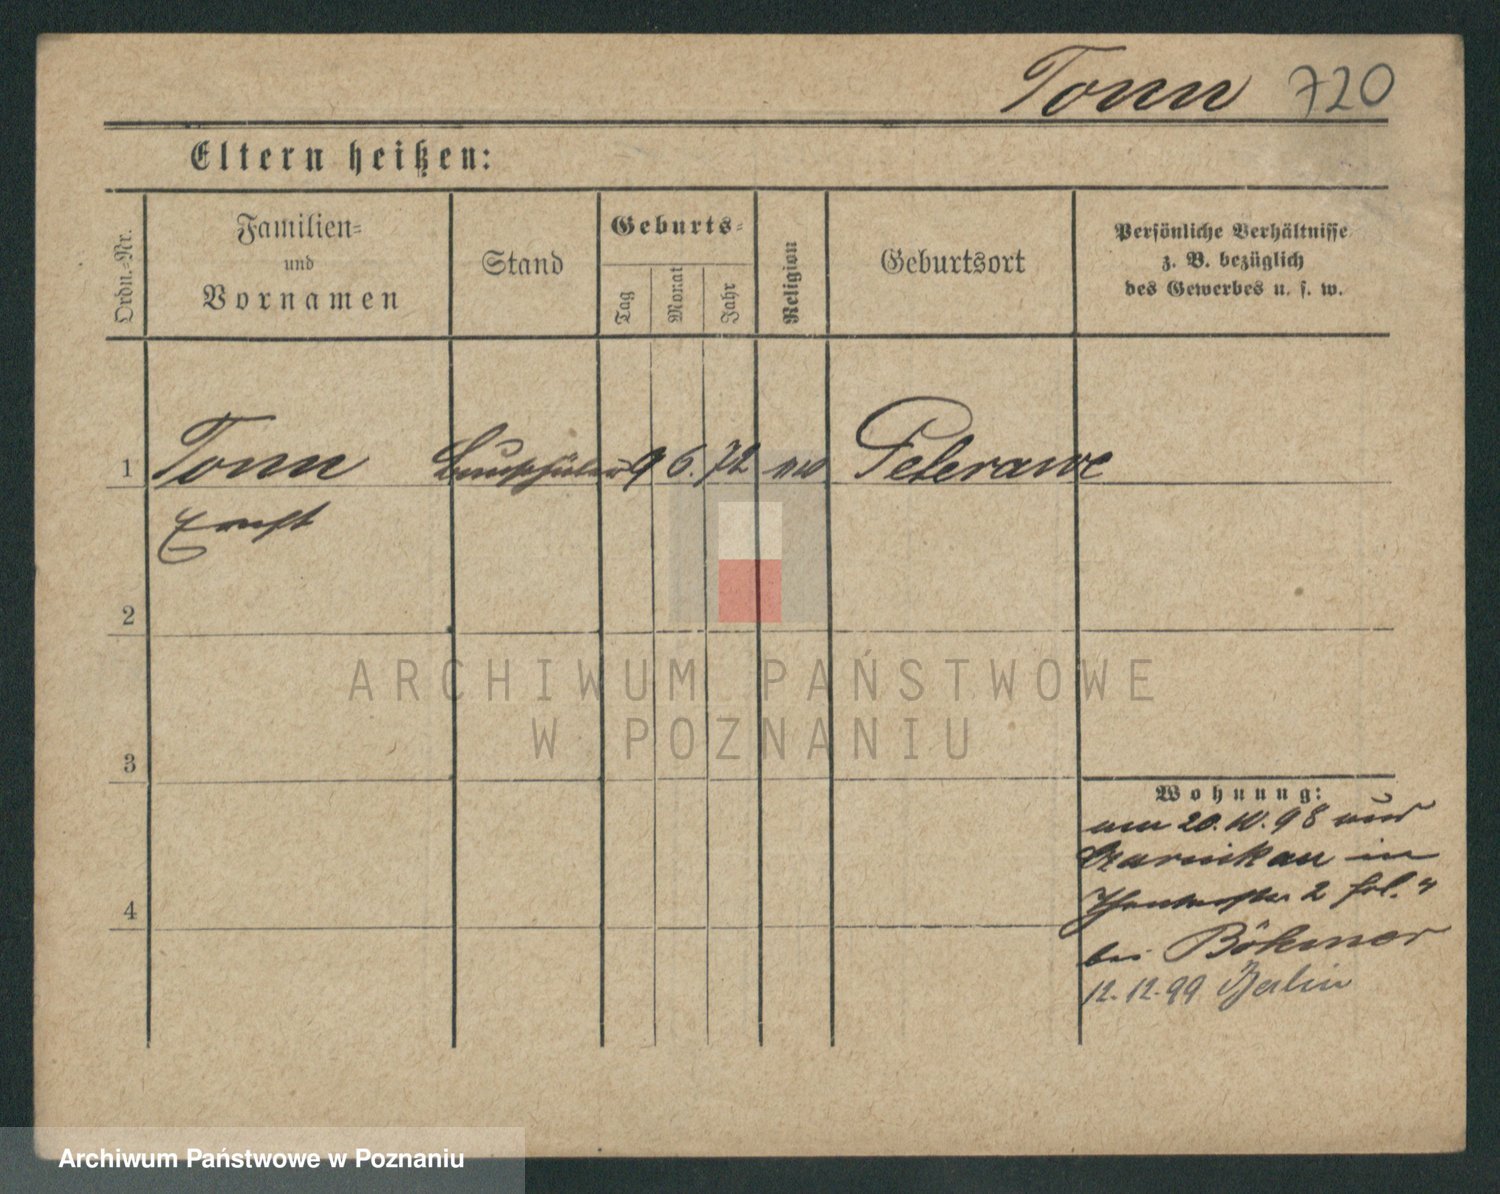 Tonn 720
Eltern heißen:
Ordn.-Nr.
Familien= und Vornamen
Stand
Geburts=
Tag
Monat
Jahr
Religion
Geburtsort
Persönliche Verhältnisse
z. B. bezüglich
des Gewerbes u. s. w.
1 Tonn 9 6. 72 Peterawe
Ernst
2
3
4
Wohnung:
am 20. 10. 98 aus
Czarnikau in
2
bei Böhmer
12. 12. 99 Berlin
ARCHIWUM PAŃSTWOWE
W POZNANIU
Archiwum Państwowe w Poznaniu